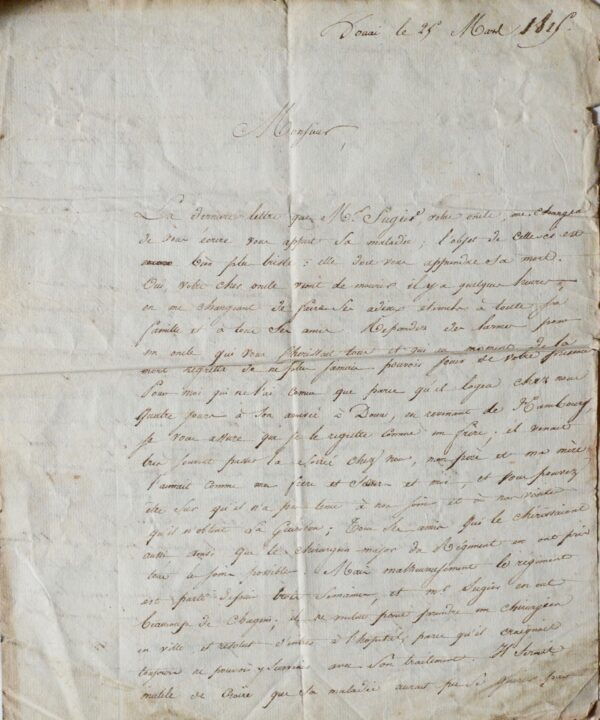 Douai le 25 Mars 1815.
Monsieur,
La derniere lettre que Mr. Sugier, votre oncle, me chargea
de vous écrire vous apprit sa maladie; l'objet de celle-ci est
bien plus triste; elle doit vous apprendre sa mort.
Oui, votre cher oncle vient de mourir il y a quelque heure
en me chargeant de faire ses adieux à toute sa
famille et à tous ses amis. Repandez des larmes pour
un oncle qui vous cherissait tous et qui au moment de la
mort regretta de ne plus jamais pouvoir jouir de votre
Pour moi qui ne l'ai connu que parce qu'il logea chez nous
quatre jours à son arrivée à Douai, en revenant de Hambourg,
je vous assure que je le regrette comme un frère; il venait
bien souvent passer la soirée chez nous, mon père et ma mère
l'aimait comme mes frère et sœur et moi, et vous pouvez
être sur qu'il n'a pas tenu à nos soins et à nos
qu'il n'obtint sa guerison; Tous ses amis qui le cherissaient
aussi ainsi que le chirurgien major du Régiment en ont pris
tous les soins possibles. Mais malheureusement le regiment
est parti depuis trois semaines, et mr Sugier en eut
beaucoup de chagrin; il ne voulut point prendre un chirurgien
en ville et résolut d'entrer à l'hopital, parce qu'il craignait
toujours de ne pouvoir y survenir avec son traitement. Il serait
inutile de croire que sa maladie aurait pu se